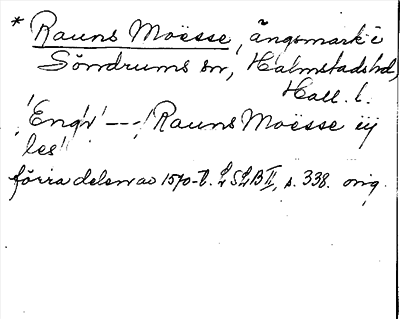 * Rauns Moësse, ängsmark i
Söndrums sn, Halmstads hd,
Hall. l.
'Eng'r' --- 'Rauns Moësse iij
les'
förra delen av 1570-t. LSLB II, s. 338. orig.